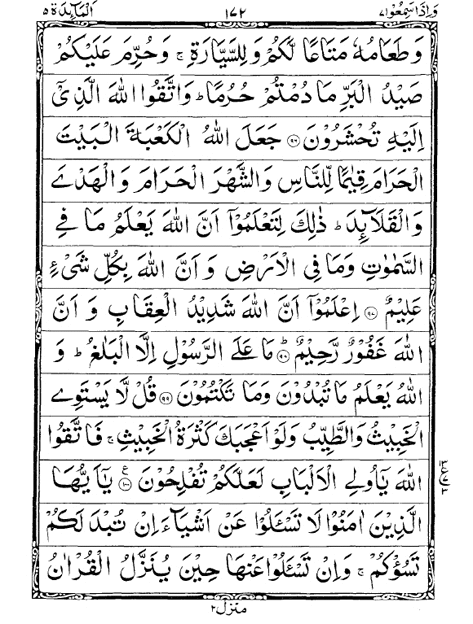 وَاِذَا سَمِعُوْا ٧ ١٧٢ اَلْمَآئِدَة ٥
وَطَعَامُهٗ مَتَاعًا لَّكُمْ وَلِلسَّيَّارَةِ ۚ وَحُرِّمَ عَلَيْكُمْ
صَيْدُ الْبَرِّ مَا دُمْتُمْ حُرُمًا ؕ وَاتَّقُوا اللّٰهَ الَّذِيْۤ
اِلَيْهِ تُحْشَرُوْنَ ﴿٩٦﴾ جَعَلَ اللّٰهُ الْكَعْبَةَ الْبَيْتَ
الْحَرَامَ قِيٰمًا لِّلنَّاسِ وَالشَّهْرَ الْحَرَامَ وَالْهَدْيَ
وَالْقَلَآئِدَ ؕ ذٰلِكَ لِتَعْلَمُوْۤا اَنَّ اللّٰهَ يَعْلَمُ مَا فِي
السَّمٰوٰتِ وَمَا فِي الْاَرْضِ وَاَنَّ اللّٰهَ بِكُلِّ شَيْءٍ
عَلِيْمٌ ﴿٩٧﴾ اِعْلَمُوْۤا اَنَّ اللّٰهَ شَدِيْدُ الْعِقَابِ وَاَنَّ
اللّٰهَ غَفُوْرٌ رَّحِيْمٌ ﴿٩٨﴾ مَا عَلَى الرَّسُوْلِ اِلَّا الْبَلٰغُ ؕ وَ
اللّٰهُ يَعْلَمُ مَا تُبْدُوْنَ وَمَا تَكْتُمُوْنَ ﴿٩٩﴾ قُلْ لَّا يَسْتَوِي
الْخَبِيْثُ وَالطَّيِّبُ وَلَوْ اَعْجَبَكَ كَثْرَةُ الْخَبِيْثِ ۚ فَاتَّقُوا
اللّٰهَ يٰۤاُولِي الْاَلْبَابِ لَعَلَّكُمْ تُفْلِحُوْنَ ﴿١٠٠﴾ ع يٰۤاَيُّهَا
الَّذِيْنَ اٰمَنُوْا لَا تَسْـَٔلُوْا عَنْ اَشْيَآءَ اِنْ تُبْدَ لَكُمْ
تَسُؤْكُمْ ۚ وَاِنْ تَسْـَٔلُوْا عَنْهَا حِيْنَ يُنَزَّلُ الْقُرْاٰنُ
منزل ٢